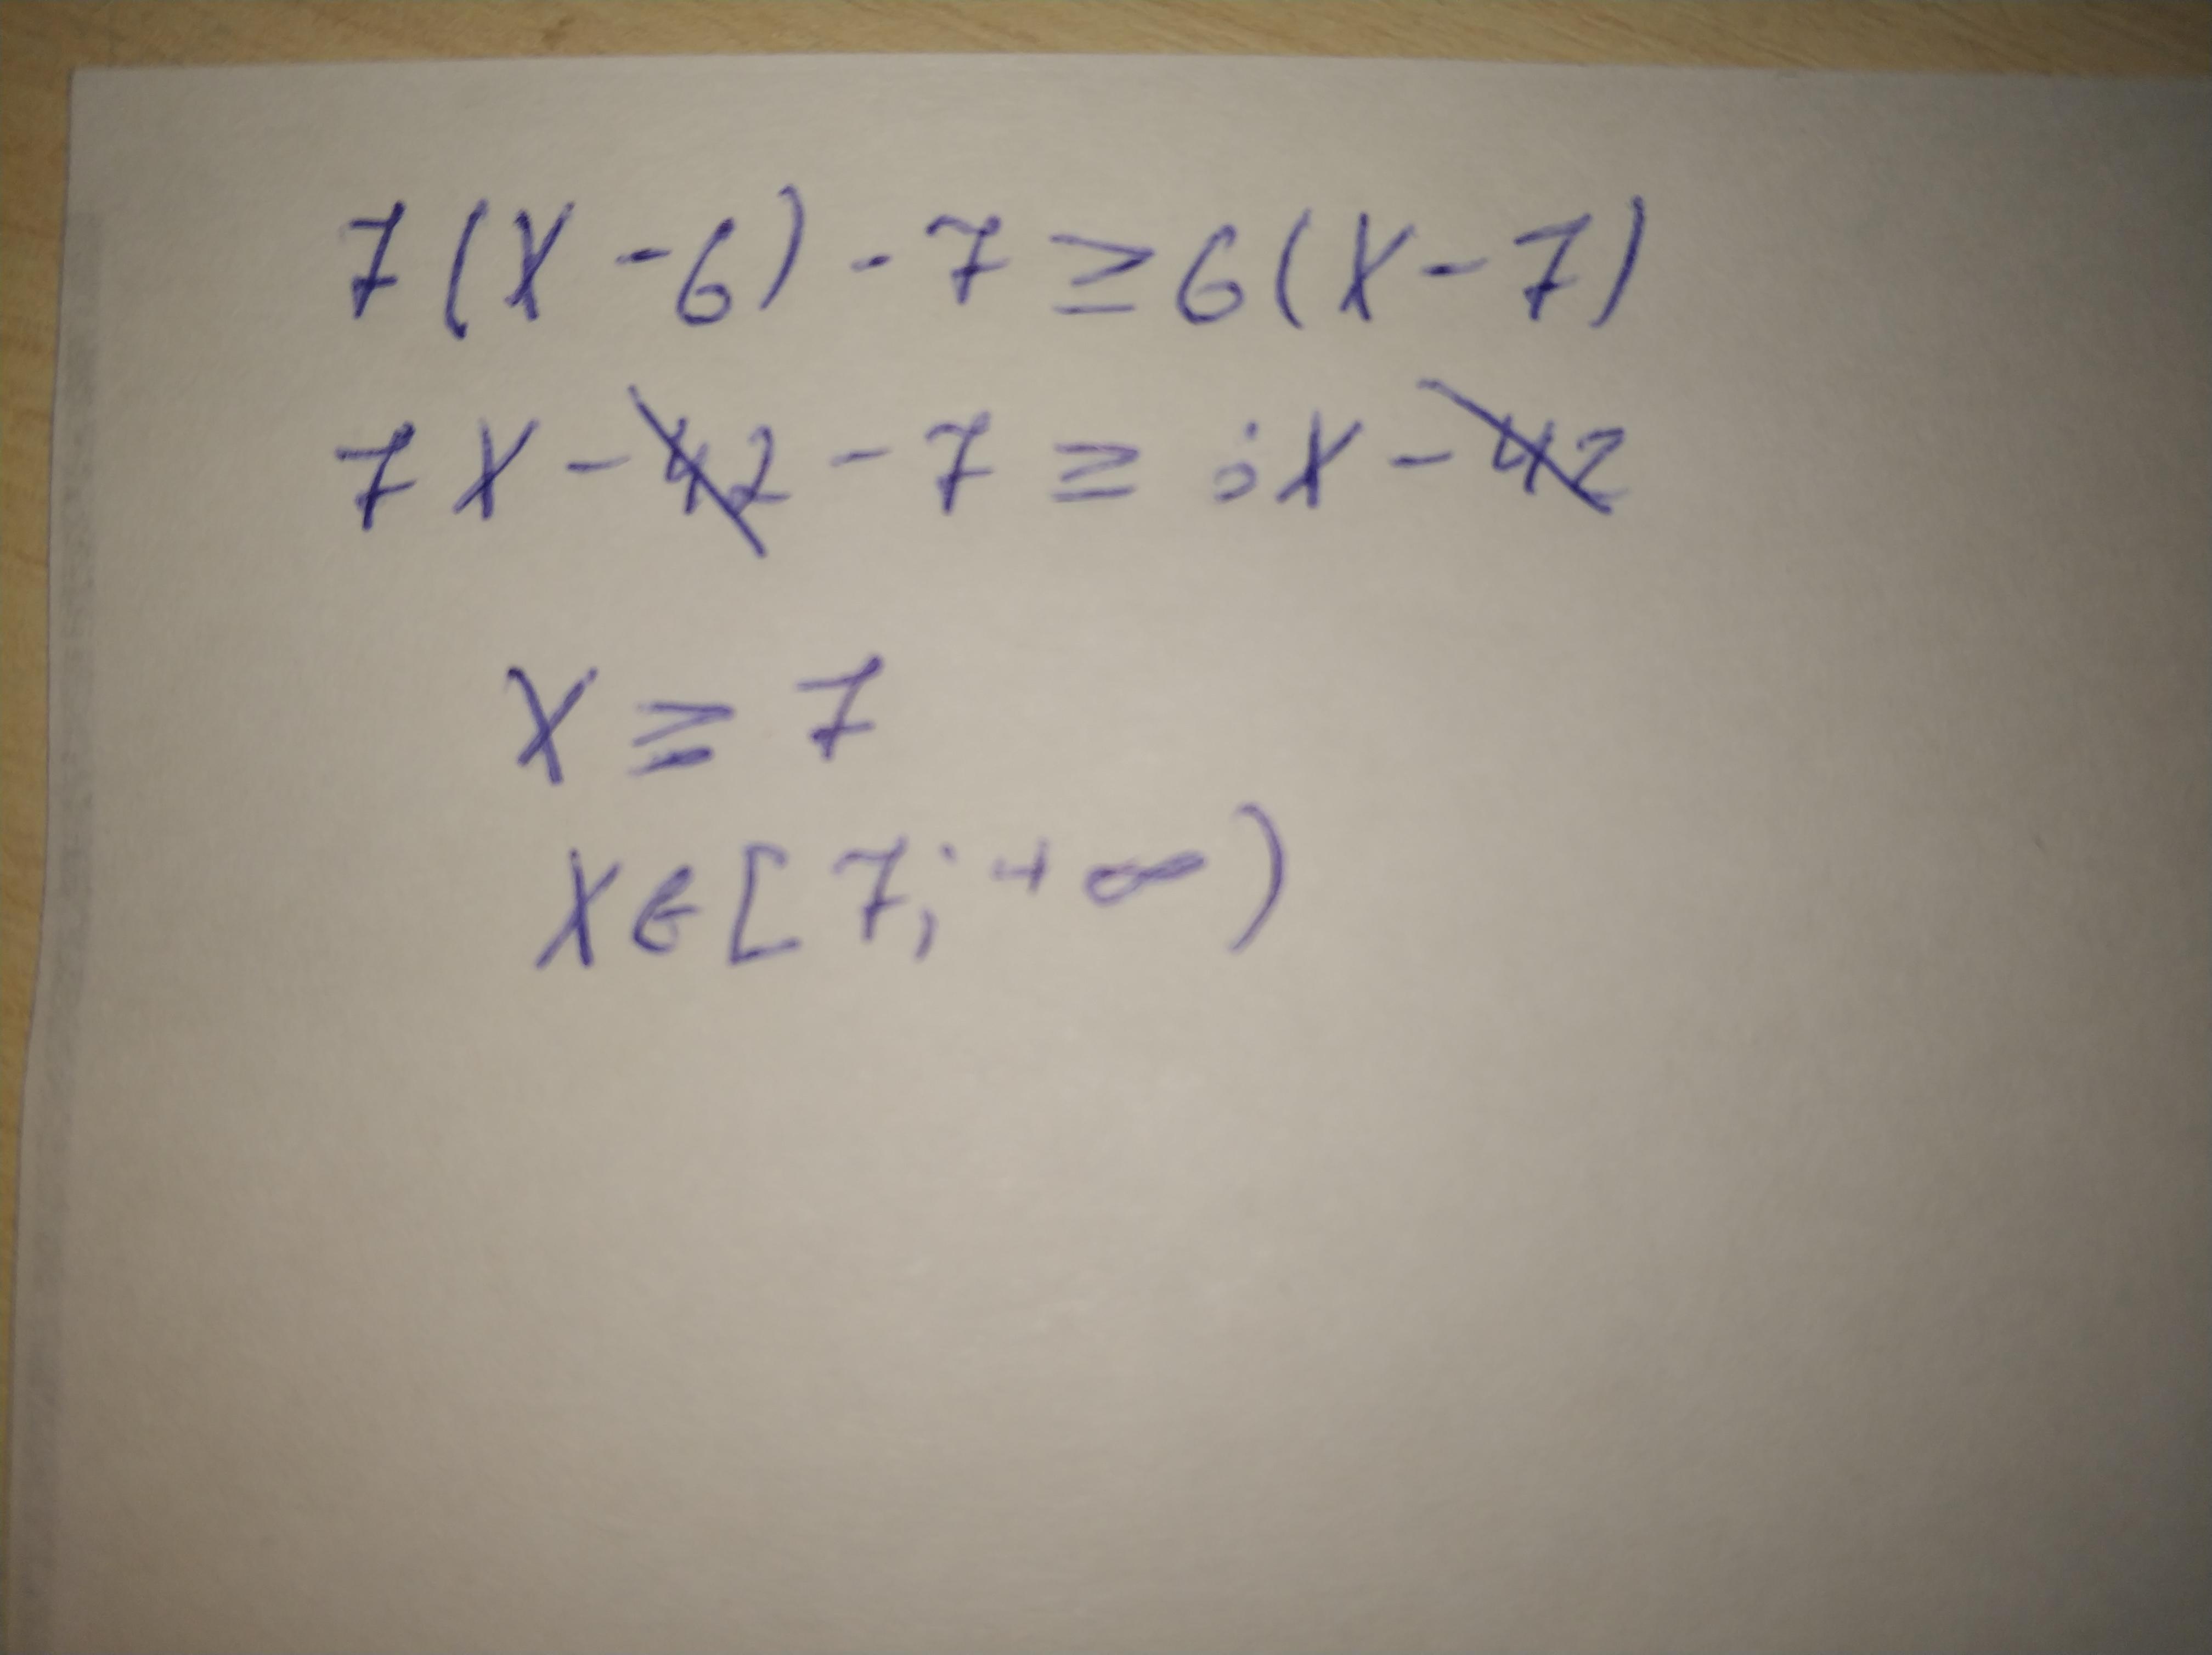 7(x-6)-7≥6(x-7)
7x-42-7≥6x-42
x≥7
x∈[7;+∞)